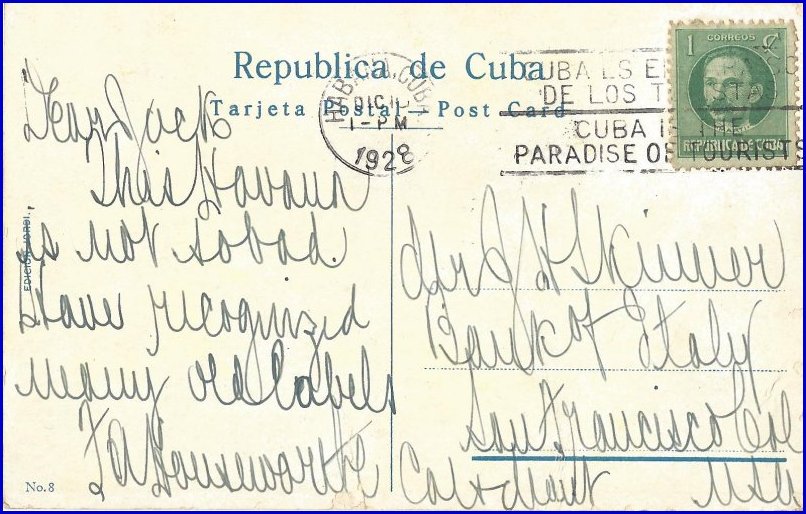 Republica de Cuba
Tarjeta Postal - Post Card
HABANA, CUBA
DIC
1-PM
1928
CUBA ES E
DE LOS T
CUBA IS THE
PARADISE OF TOURISTS
1 CORREOS
REPUBLICA DE CUBA
Dear Jack
This Havana
is not so bad.
Have recognized
many old labels
EDICION JORDI.
No. 8
Skinner
Bank of Italy
San Francisco Cal
USA